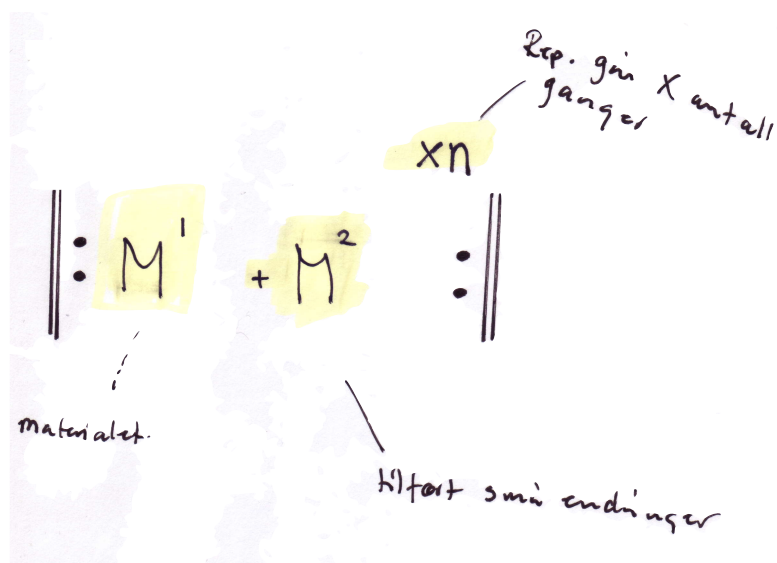 Rep. går X antall
ganger
xn
M¹ + M²
materialet.
tilført små endringer